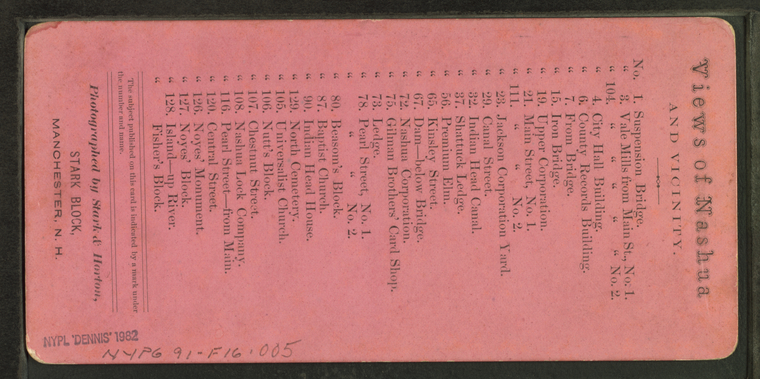 Views of Nashua
AND VICINITY.
No. 1. Suspension Bridge.
" 3. Vale Mills from Main St., No. 1.
" 104. " " " " " No. 2.
" 4. City Hall Building.
" 6. County Record Building.
" 7. From Bridge.
" 15. Iron Bridge.
" 19. Upper Corporation.
" 21. Main Street, No. 1.
" 111. " " No. 2.
" 23. Jackson Corporation Yard.
" 29. Canal Street.
" 32. Indian Head Canal.
" 37. Shattuck Ledge.
" 56. Premium Elm.
" 65. Kinsley Street.
" 67. Dam—below Bridge.
" 72. Nashua Corporation.
" 75. Gilman Brothers' Card Shop.
" 73. Ledge.
" 78. Pearl Street, No. 1.
" " " No. 2.
" 80. Beasom's Block.
" 87. Baptist Church.
" 90. Indian Head House.
" 129. North Cemetery.
" 105. Universalist Church.
" 106. Nutt's Block.
" 107. Chestnut Street.
" 108. Nashua Lock Company.
" 116. Pearl Street—from Main.
" 120. Central Street.
" 126. Noyes' Monument.
" 127. Noyes' Block.
" 128. Island—up River.
" Fisher's Block.
The subject published on this card is indicated by a mark under
the number and name.
Photographed by Stark & Horton,
STARK BLOCK,
MANCHESTER, N. H.
NYPL "DENNIS" 1982
NYPG 91-F16.005